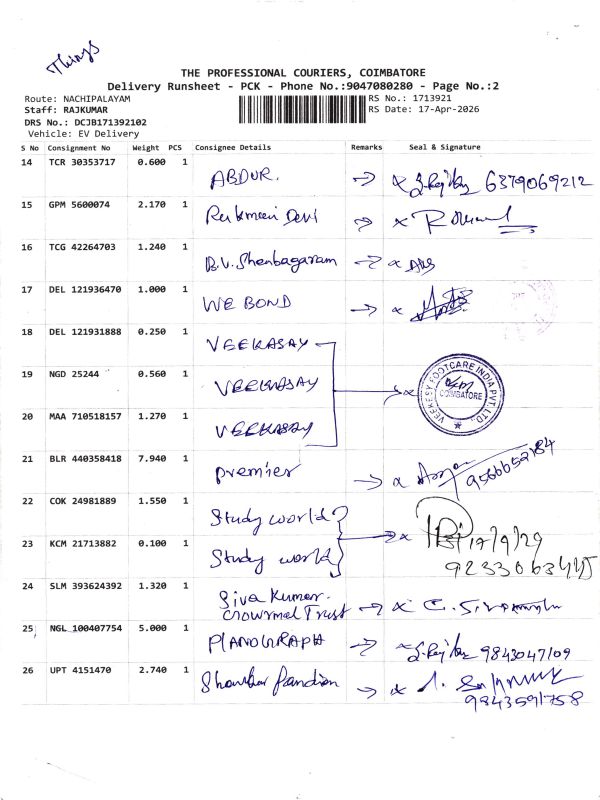 Things
THE PROFESSIONAL COURIERS, COIMBATORE
Delivery Runsheet - PCK - Phone No.:9047080280 - Page No.:2
Route: NACHIPALAYAM
RS No.: 1713921
Staff: RAJKUMAR
RS Date: 17-Apr-2026
DRS No.: DCJB171392102
Vehicle: EV Delivery
S No Consignment No Weight PCS Consignee Details Remarks Seal & Signature
14 TCR 30353717 0.600 1 ABDUR. 6379069212
15 GPM 5600074 2.170 1 Rukmani Devi
16 TCG 42264703 1.240 1 B.V. Shenbagaram
17 DEL 121936470 1.000 1 WE BOND
18 DEL 121931888 0.250 1 VEEKASAY
19 NGD 25244 0.560 1 VEEKASAY
VEEKESY FOOTCARE INDIA PVT. LTD.
COIMBATORE
20 MAA 710518157 1.270 1 VEEKASAY
21 BLR 440358418 7.940 1 premier 9566652184
22 COK 24981889 1.550 1 Study world
23 KCM 21713882 0.100 1 Study world
9233063445
24 SLM 393624392 1.320 1 Siva Kumar.
Trust
25 NGL 100407754 5.000 1 PLANOGRAPH 9843047109
26 UPT 4151470 2.740 1 Shankar Pandian
9843591758